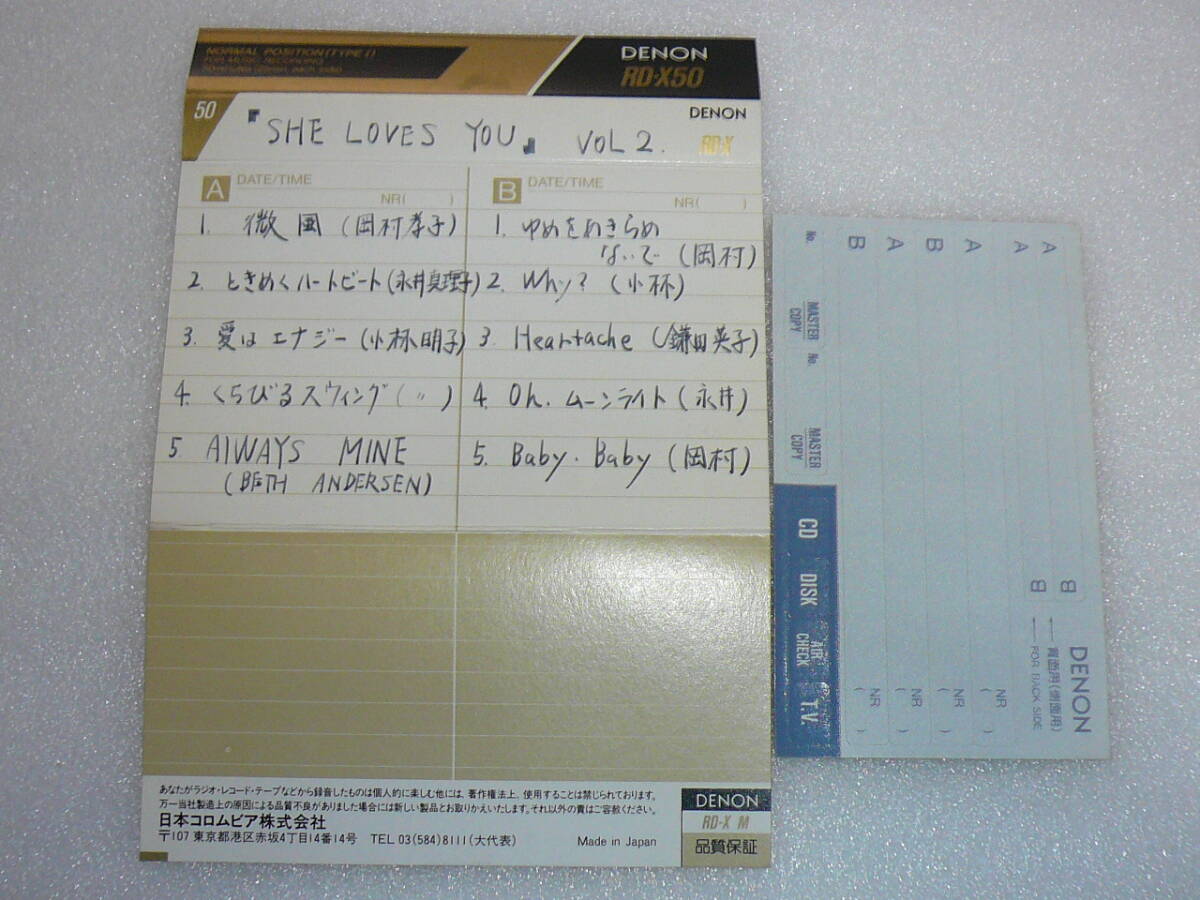 NORMAL POSITION (TYPE I)
FOR MUSIC RECORDING
DENON
RD-X50
50
DENON
『SHE LOVES YOU』 VOL 2.
RD-X
A DATE/TIME
NR( )
1. 微風 (岡村孝子)
2. ときめくハートビート (永井真理子)
3. 愛はエナジー (小林明子)
4. くちびるスウィング ( 〃 )
5 AlWAYS MINE
(BETH ANDERSEN)
B DATE/TIME
NR( )
1. ゆめをあきらめ
ないで (岡村)
2. Why? (小林)
3. Heartache (鎌田英子)
4. Oh. ムーンライト (永井)
5. Baby・Baby (岡村)
あなたがラジオ・レコード・テープなどから録音したものは個人的に楽しむ他には、著作権法上、使用することは禁じられております。
万一当社製造上の原因による品質不良がありました場合には新しい製品とお取りかえいたします。それ以外の責はご容赦ください。
日本コロムビア株式会社
〒107 東京都港区赤坂4丁目14番14号 TEL 03(584)8111(大代表) Made in Japan
DENON
RD-X M
品質保証
A
A
B
B
A
B
A
B
NR ( )
NR ( )
NR ( )
NR ( )
DENON
← 背面用(側面用)
← FOR BACK SIDE
No.
MASTER
COPY
No.
MASTER
COPY
CD
DISK
AIR
CHECK
T.V.